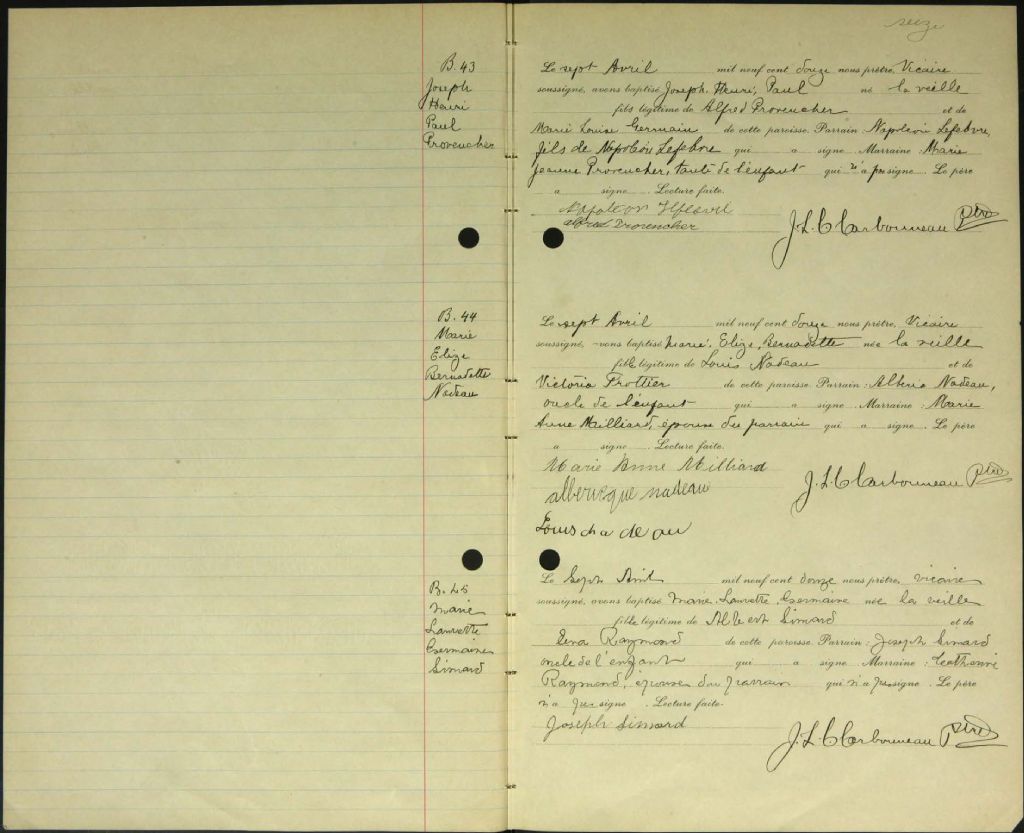 seize
B. 43
Joseph
Henri
Paul
Provencher
Le sept Avril mil neuf cent douze nous prêtre, Vicaire
soussigné, avons baptisé Joseph, Henri, Paul né la veille
fils légitime de Alfred Provencher et de
Marie Louise Germain de cette paroisse. Parrain Napoléon Lefebvre,
fils de Napoléon Lefebvre qui a signé. Marraine : Marie
Jeanne Provencher, tante de l'enfant qui n'a pas signé. Le père
a signé. Lecture faite.
Napoleon Lefebvre
alfred Provencher
J. L. C Carbonneau ptre
B. 44
Marie
Elize
Bernadette
Nadeau
Le sept Avril mil neuf cent douze nous prêtre, Vicaire
soussigné, avons baptisé Marie, Elize, Bernadette née la veille
fille légitime de Louis Nadeau et de
Victoria Trottier de cette paroisse. Parrain : Nadeau,
oncle de l'enfant qui a signé. Marraine : Marie
Anne Milliard, épouse du parrain qui a signé. Le père
a signé. Lecture faite.
Marie Anne Milliard
nadeau
J. L. C Carbonneau ptre
Louis
B. 45
Marie
Laurette
Germaine
Simard
Le Sept Avril mil neuf cent douze nous prêtre, vicaire
soussigné, avons baptisé Marie, Laurette, Germaine née la veille
fille légitime de Albert Simard et de
Raymond de cette paroisse. Parrain : Joseph Simard
oncle de l'enfant qui a signé. Marraine :
Raymond, épouse du parrain qui n'a pas signé. Le père
n'a pas signé. Lecture faite.
Joseph Simard
J. L. C Carbonneau ptre